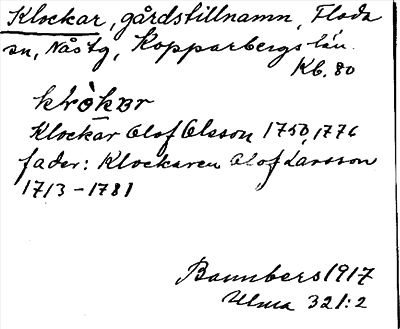 Klockar, gårdstillnamn, Floda
sn, Nåstg, Kopparbergs län.
Kb. 80
klòkar
Klockar Olof Olsson 1750, 1776
fader: Klockaren Olof Larsson
1713-1781
Bannbers 1917
Ulma 321:2